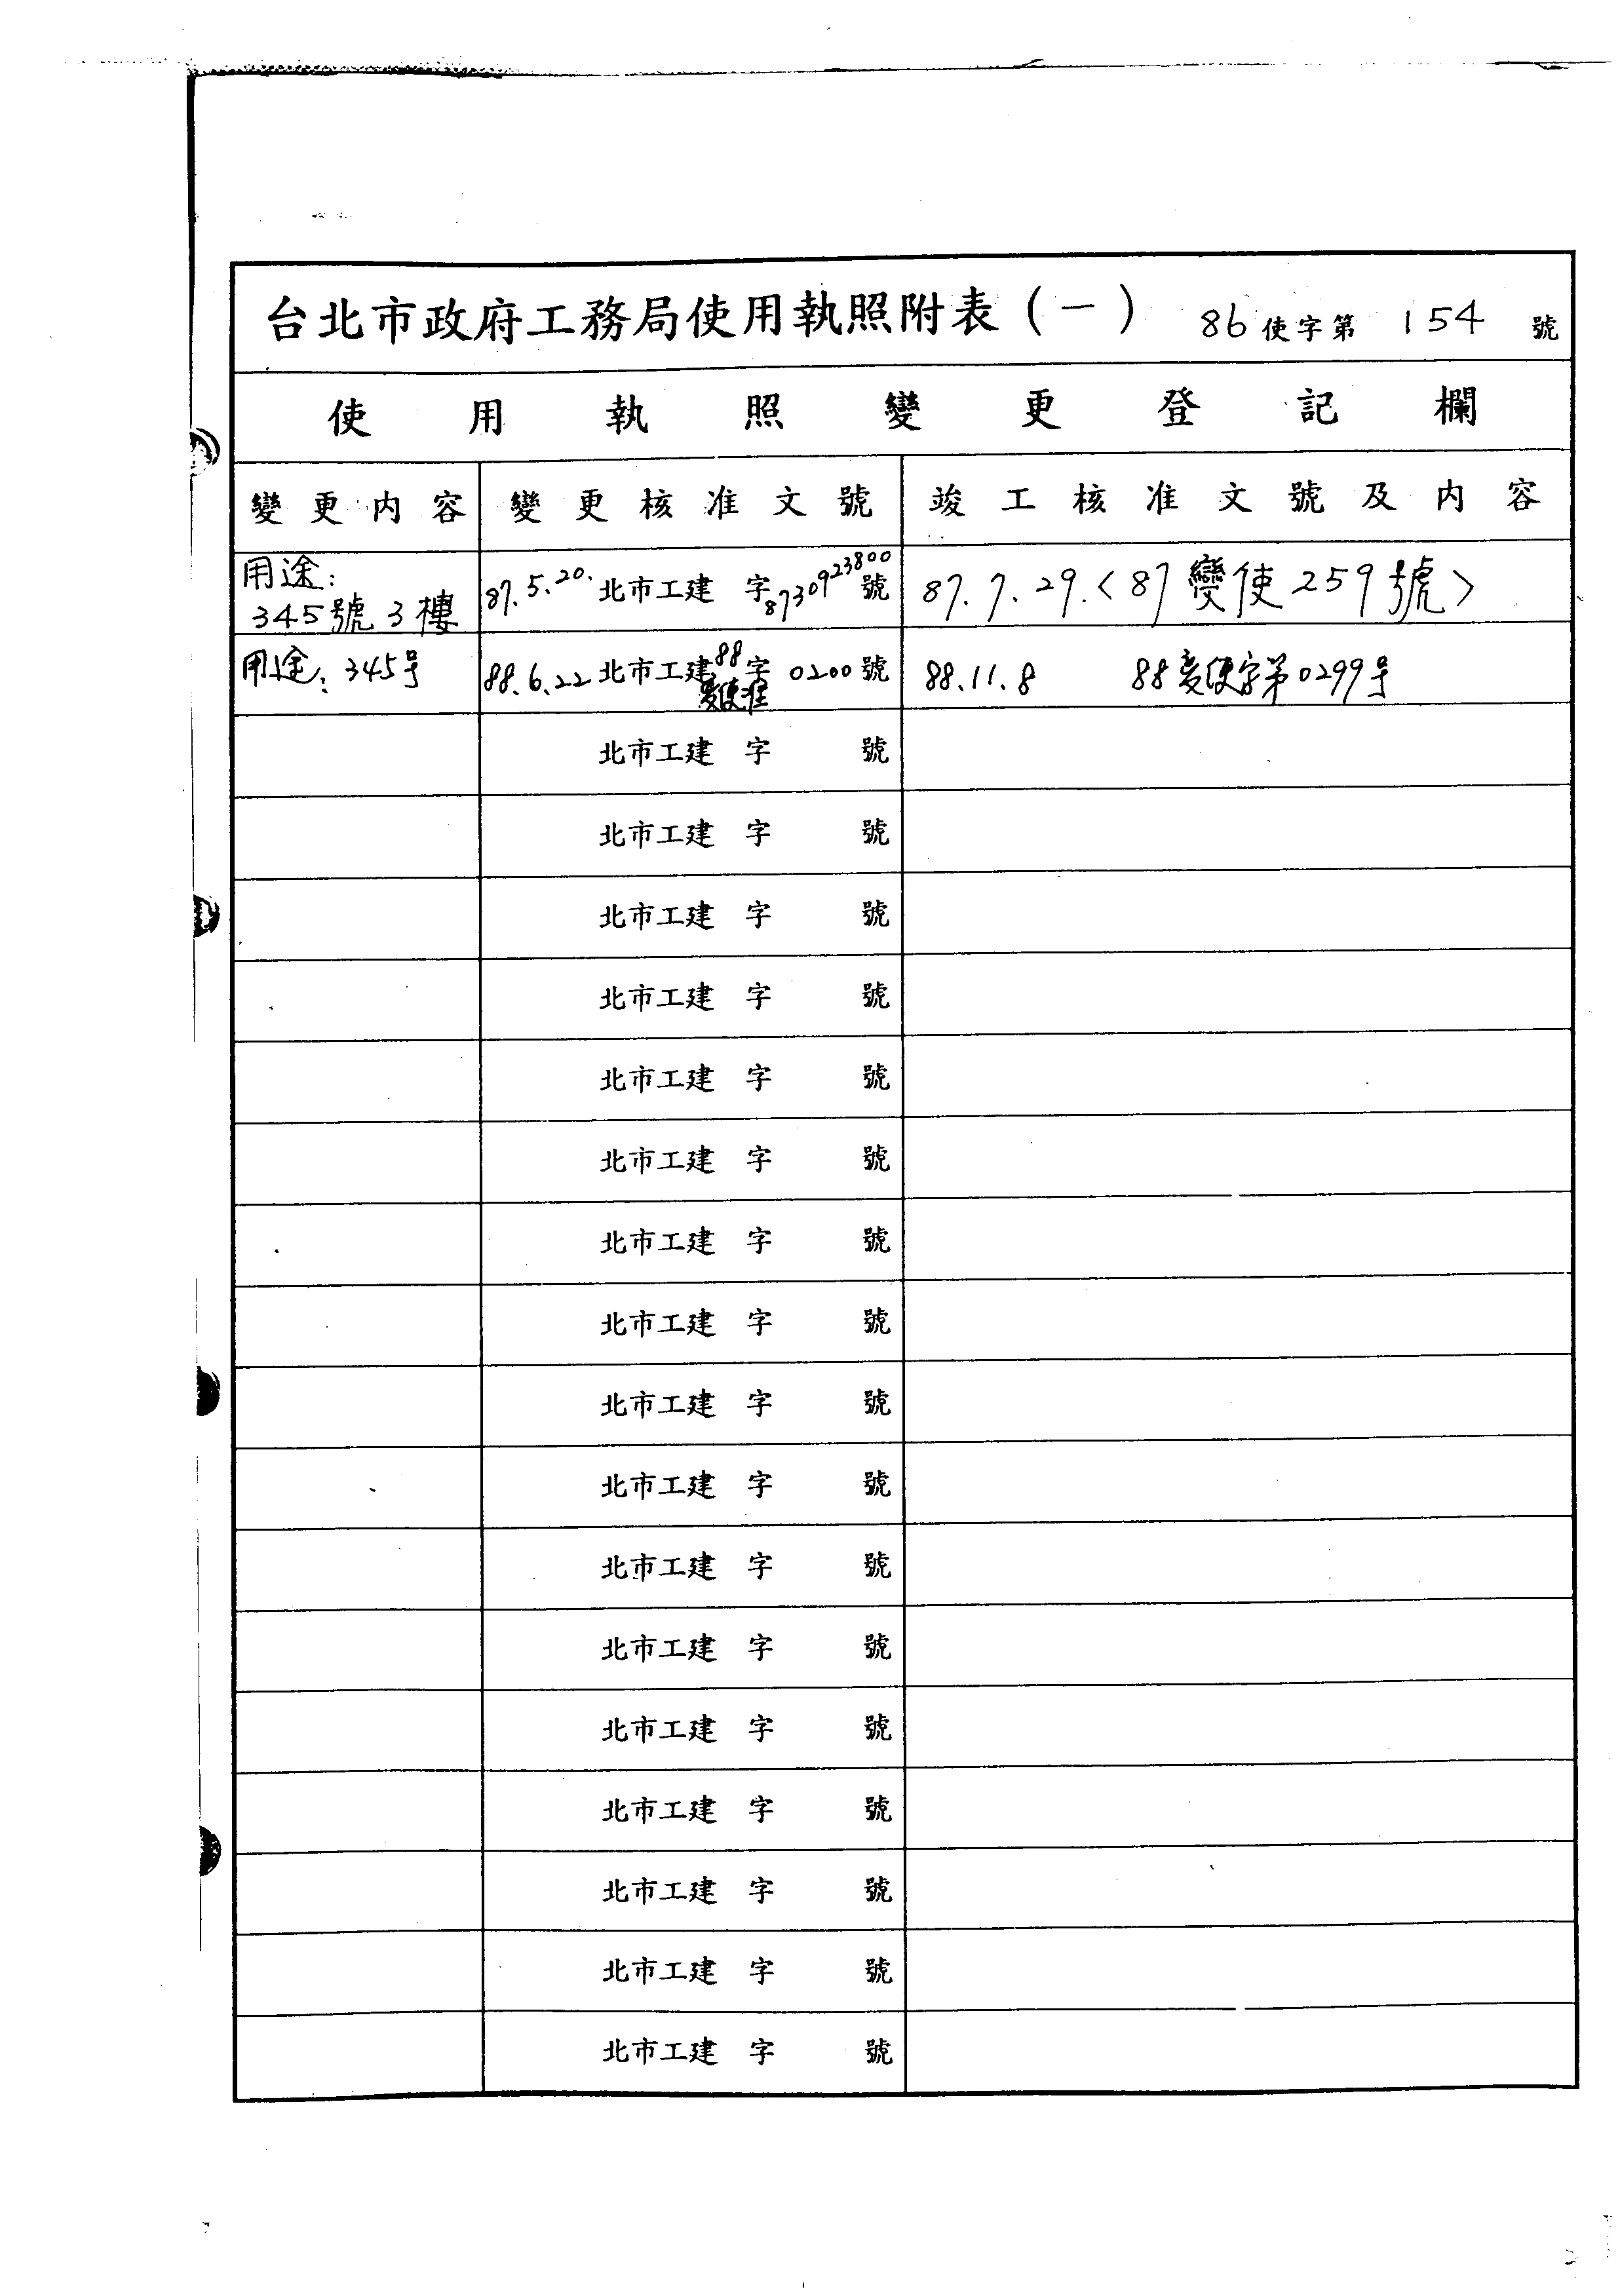 台北市政府工務局使用執照附表(一) 86使字第 154 號
使用執照變更登記欄
變更內容 變更核准文號 竣工核准文號及內容
用途:
345號3樓 87.5.20. 北市工建 字8730923800號 87.7.29.<87變使259號>
用途:345号 88.6.22 北市工建88字 0200號 88.11.8 88変使字第0299号
変使准
北市工建 字 號
北市工建 字 號
北市工建 字 號
北市工建 字 號
北市工建 字 號
北市工建 字 號
北市工建 字 號
北市工建 字 號
北市工建 字 號
北市工建 字 號
北市工建 字 號
北市工建 字 號
北市工建 字 號
北市工建 字 號
北市工建 字 號
北市工建 字 號
北市工建 字 號